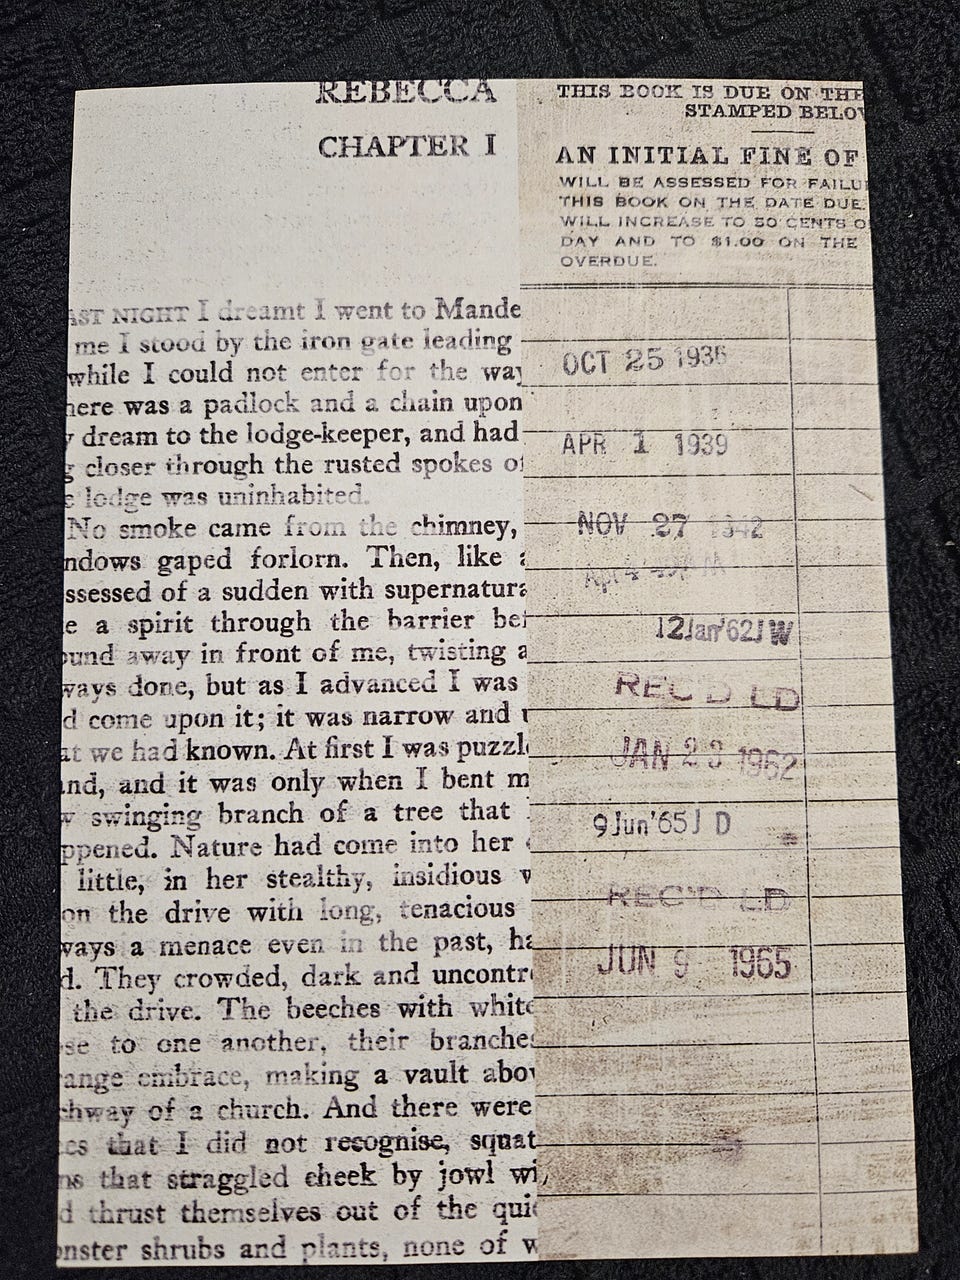 REBECCA
CHAPTER I
AST NIGHT I dreamt I went to Mande
me I stood by the iron gate leading
while I could not enter for the way
here was a padlock and a chain upon
y dream to the lodge-keeper, and had
g closer through the rusted spokes of
e lodge was uninhabited.
No smoke came from the chimney,
ndows gaped forlorn. Then, like a
ssessed of a sudden with supernatura
e a spirit through the barrier bef
ound away in front of me, twisting a
ways done, but as I advanced I was
d come upon it; it was narrow and u
at we had known. At first I was puzzl
and, and it was only when I bent m
w swinging branch of a tree that
ppened. Nature had come into her
little, in her stealthy, insidious w
on the drive with long, tenacious
ways a menace even in the past, ha
d. They crowded, dark and uncontro
the drive. The beeches with white
se to one another, their branches
range embrace, making a vault abov
chway of a church. And there were
es that I did not recognise, squat
ns that straggled cheek by jowl wi
d thrust themselves out of the quie
onster shrubs and plants, none of w
THIS BOOK IS DUE ON THE
STAMPED BELOW
AN INITIAL FINE OF
WILL BE ASSESSED FOR FAILU
THIS BOOK ON THE DATE DUE.
WILL INCREASE TO 50 CENTS O
DAY AND TO $1.00 ON THE
OVERDUE.
OCT 25 1938
APR 1 1939
NOV 27 1942
12Jan'62JW
REC'D LD
JAN 23 1962
9Jun'65J D
REC'D LD
JUN 9 1965